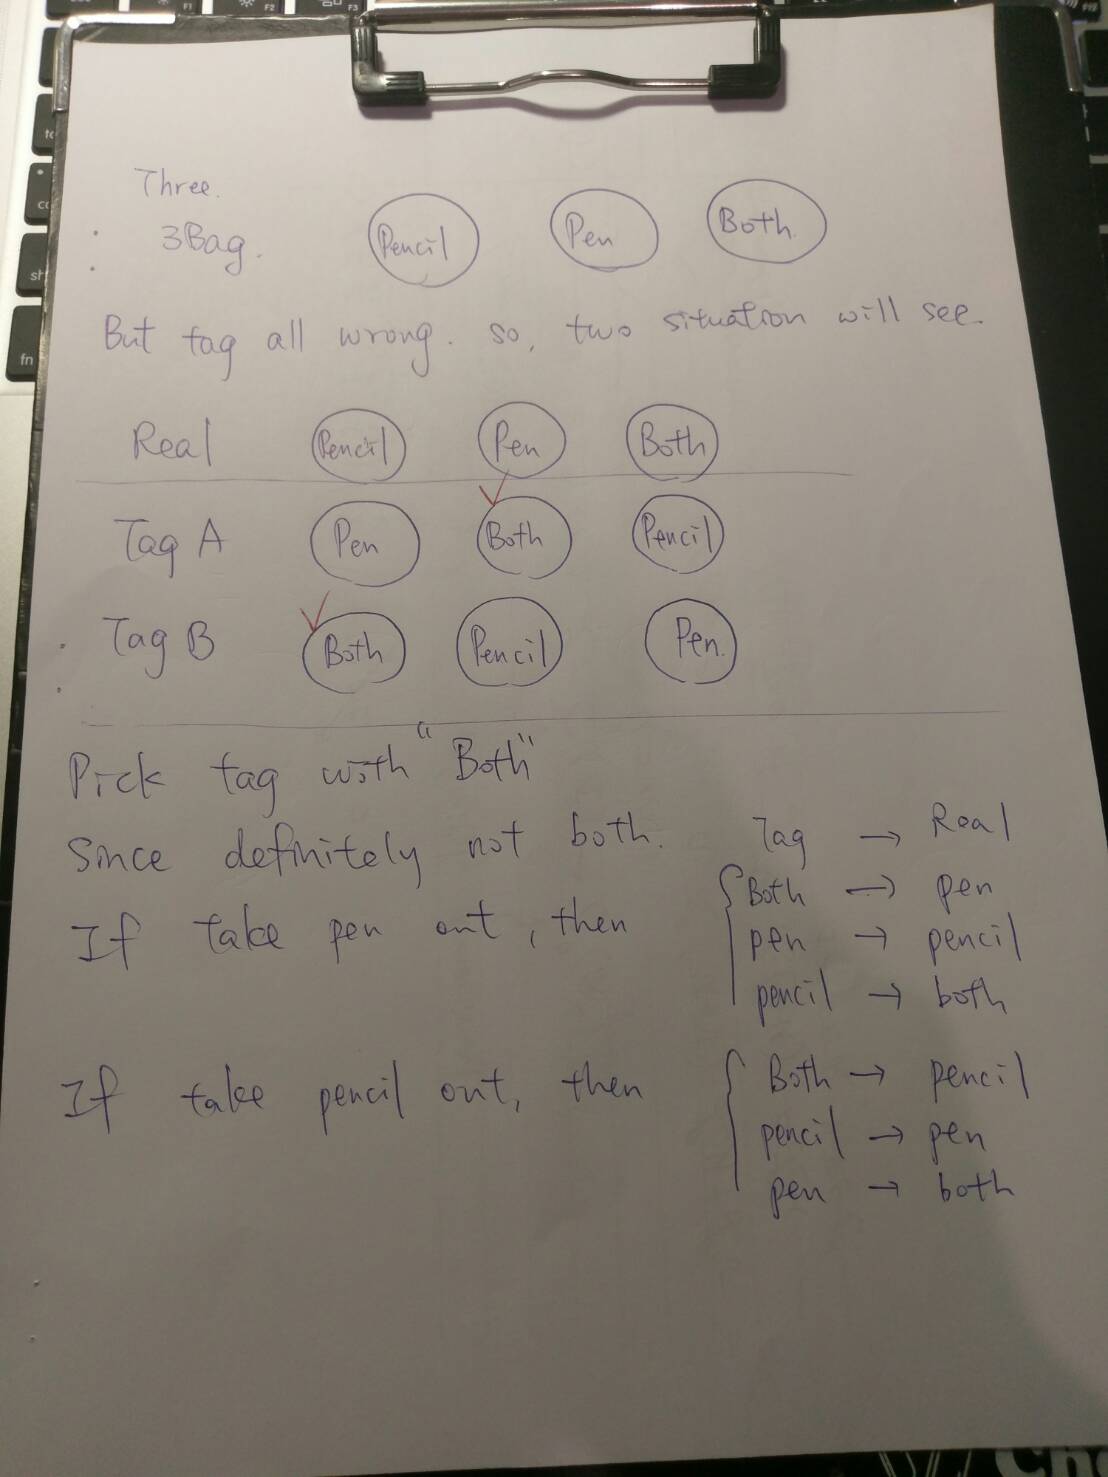 Three.
3Bag. Pencil Pen Both.
But tag all wrong. so, two situation will see.
Real Pencil Pen Both
Tag A Pen Both Pencil
Tag B Both Pencil Pen.
Pick tag with "Both"
Since definitely not both. Tag → Real
Both → pen
If take pen out, then pen → pencil
pencil → both
If take pencil out, then Both → pencil
pencil → pen
pen → both